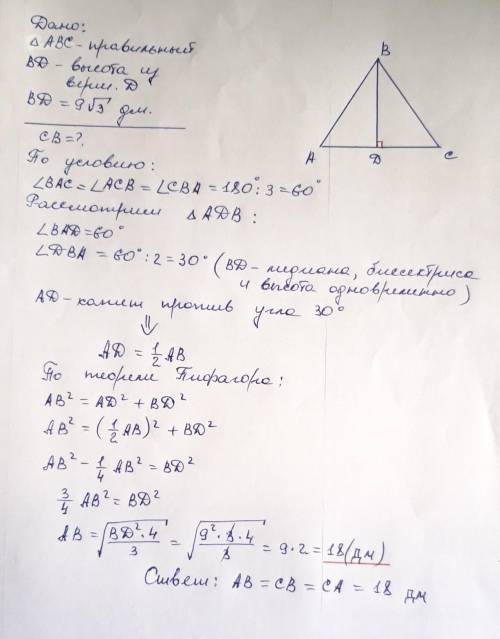 Дано:
△ABC - правильный
BD - высота из
верш. D
BD = 9√3 дм.
CB = ?
По условию:
∠BAC = ∠ACB = ∠CBA = 180° : 3 = 60°
Рассмотрим △ADB:
∠BAD = 60°
∠DBA = 60° : 2 = 30° (BD - медиана, биссектриса
и высота одновременно)
AD - катет против угла 30°
⇓
AD = 1/2 AB
По теореме Пифагора:
AB² = AD² + BD²
AB² = (1/2 AB)² + BD²
AB² - 1/4 AB² = BD²
3/4 AB² = BD²
AB = √(BD² · 4 / 3) = √(9² · 3 · 4 / 3) = 9 · 2 = 18 (дм)
Ответ: AB = CB = CA = 18 дм
B
A
D
C